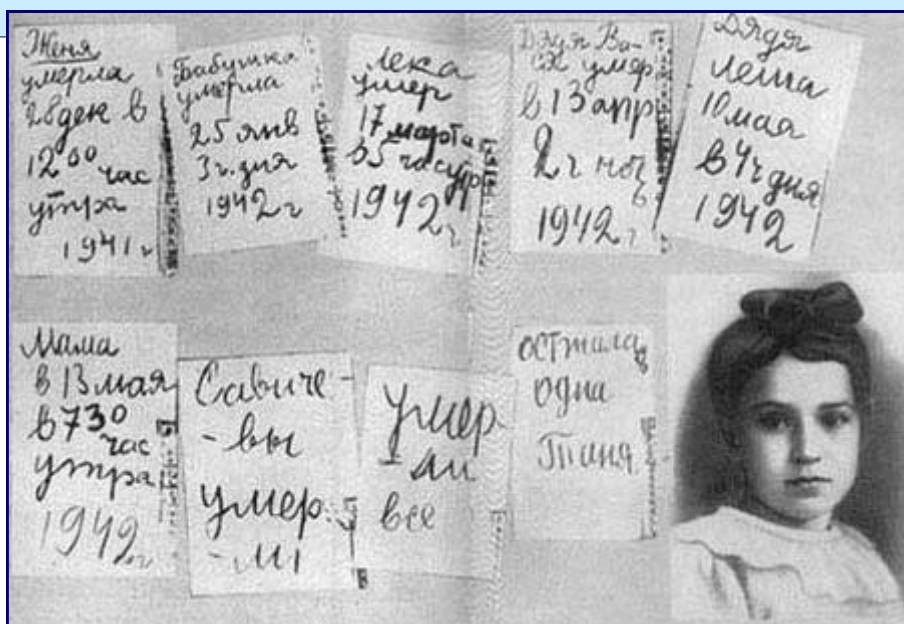 Женя
умерла
28 дек в
12 00 час
утра
1941 г
Бабушка
умерла
25 янв
3 ч. дня
1942 г
Лека
умер
17 марта
в 5 час утр
1942 г
Дядя Ва-
ся умер
в 13 апр
2 ч ноч
ь
1942 г
Дядя
Леша
10 мая
в 4 ч дня
1942
Мама
в 13 мая
в 7 30
час
утра
1942 г
Савиче-
-вы
умер
-ли
умер
-ли
все
осталась
одна
Таня